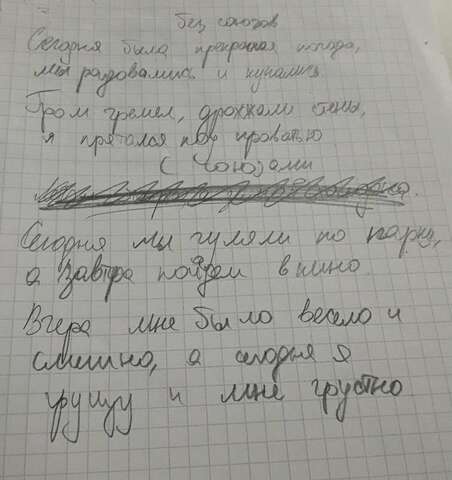 без союзов
Сегодня была прекрасная погода,
мы радовались и купались
Гром гремел, дрожжали стены,
я прятался под кроватью
( союзами
Сегодня мы гуляли по парку,
а завтра пойдем в кино
Вчера мне было весело и
смешно, а сегодня я
грущу и мне грустно